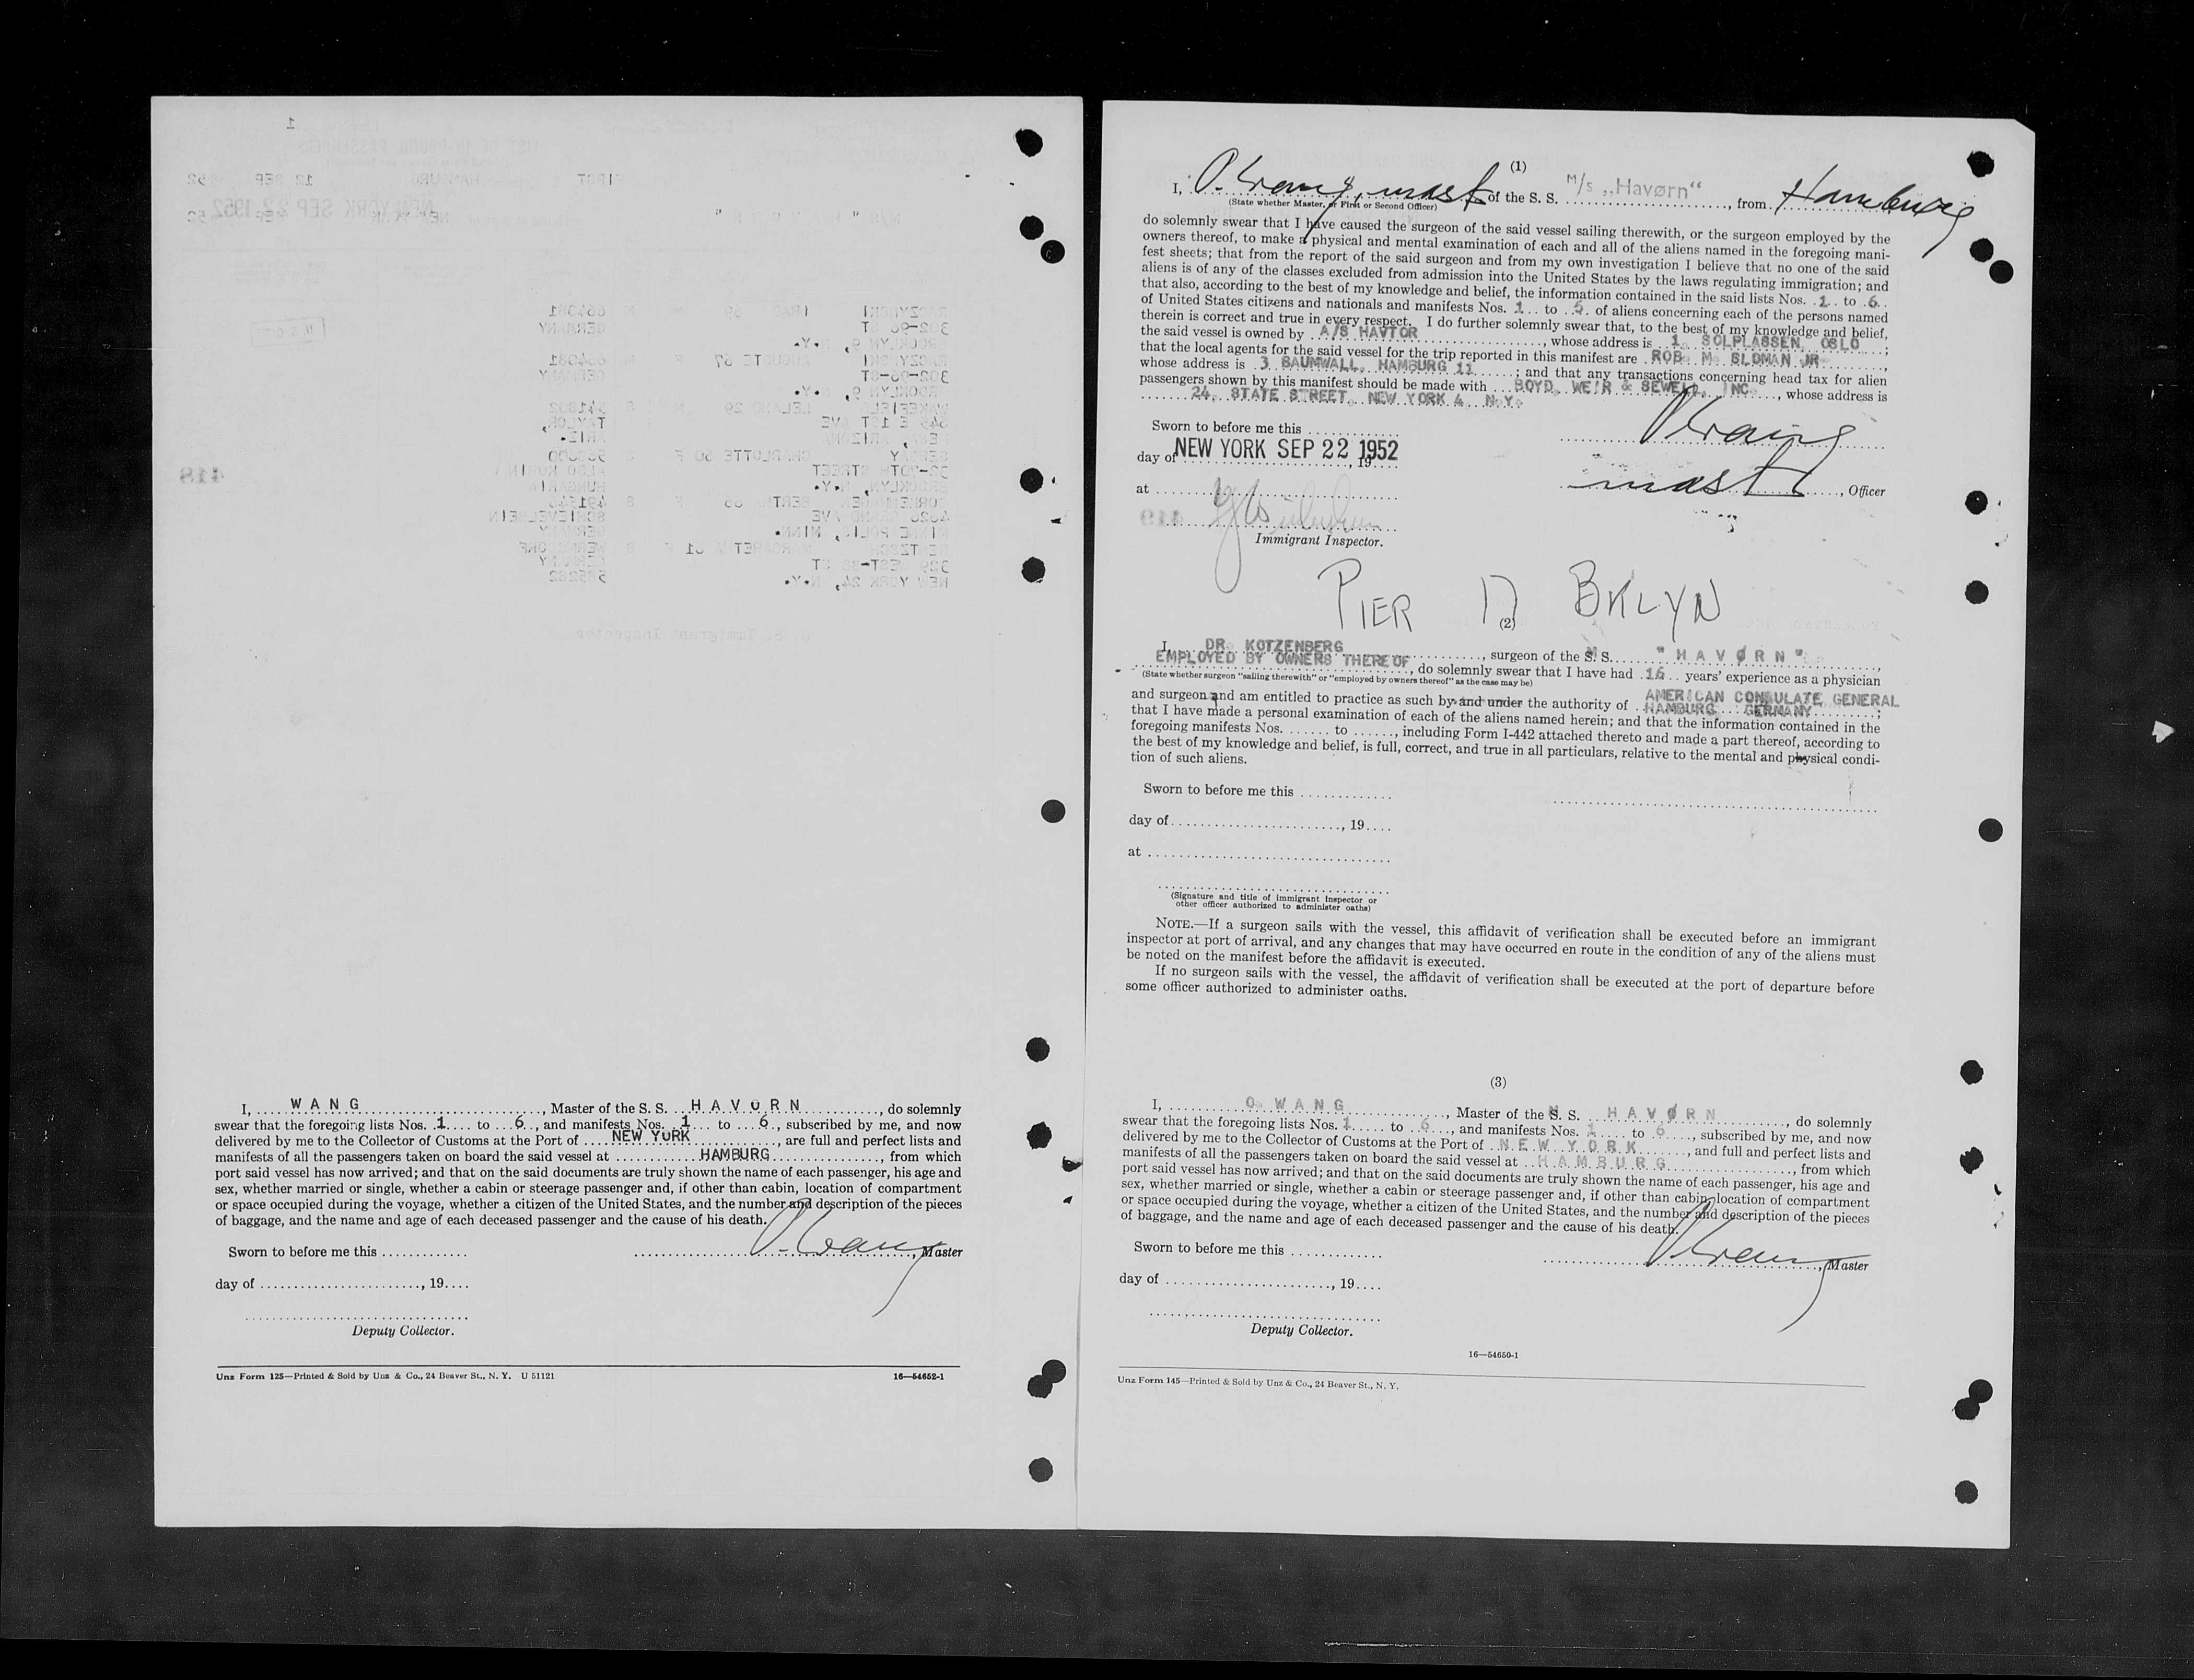 I, WANG, Master of the S. S. HAVORN, do solemnly
swear that the foregoing lists Nos. 1 to 6, and manifests Nos. 1 to 6, subscribed by me, and now
delivered by me to the Collector of Customs at the Port of NEW YORK, are full and perfect lists and
manifests of all the passengers taken on board the said vessel at HAMBURG, from which
port said vessel has now arrived; and that on the said documents are truly shown the name of each passenger, his age and
sex, whether married or single, whether a cabin or steerage passenger and, if other than cabin, location of compartment
or space occupied during the voyage, whether a citizen of the United States, and the number and description of the pieces
of baggage, and the name and age of each deceased passenger and the cause of his death.
Sworn to before me this ............. O. Wang, Master
day of ......................, 19....
Deputy Collector.
Unz Form 125—Printed & Sold by Unz & Co., 24 Beaver St., N. Y. U 51121 16—54652-1
(1)
I, O. Wang, mast of the S. S. M/s „Havørn“, from Hamburg
(State whether Master, or First or Second Officer)
do solemnly swear that I have caused the surgeon of the said vessel sailing therewith, or the surgeon employed by the
owners thereof, to make a physical and mental examination of each and all of the aliens named in the foregoing mani-
fest sheets; that from the report of the said surgeon and from my own investigation I believe that no one of the said
aliens is of any of the classes excluded from admission into the United States by the laws regulating immigration; and
that also, according to the best of my knowledge and belief, the information contained in the said lists Nos. 1 to 6
of United States citizens and nationals and manifests Nos. 1 to 5 of aliens concerning each of the persons named
therein is correct and true in every respect. I do further solemnly swear that, to the best of my knowledge and belief,
the said vessel is owned by A/S HAVTOR, whose address is 1, SOLPLASSEN, OSLO;
that the local agents for the said vessel for the trip reported in this manifest are ROB. M. SLOMAN JR,
whose address is 3 BAUMWALL, HAMBURG 11; and that any transactions concerning head tax for alien
passengers shown by this manifest should be made with BOYD, WEIR & SEWELL, INC., whose address is
24, STATE STREET, NEW YORK 4 N.Y.
Sworn to before me this ............. O. Wang
day of NEW YORK SEP 22 1952, 19
at .................... mast, Officer
Immigrant Inspector.
PIER 17 BKLYN
(2)
I, DR. KOTZENBERG, surgeon of the M. S. "HAVØRN",
EMPLOYED BY OWNERS THEREOF, do solemnly swear that I have had 16 years' experience as a physician
(State whether surgeon "sailing therewith" or "employed by owners thereof" as the case may be)
and surgeon and am entitled to practice as such by and under the authority of AMERICAN CONSULATE GENERAL
HAMBURG GERMANY;
that I have made a personal examination of each of the aliens named herein; and that the information contained in the
foregoing manifests Nos. ...... to ......, including Form I-442 attached thereto and made a part thereof, according to
the best of my knowledge and belief, is full, correct, and true in all particulars, relative to the mental and physical condi-
tion of such aliens.
Sworn to before me this .............
day of ......................, 19....
at ......................
(Signature and title of immigrant inspector or
other officer authorized to administer oaths)
NOTE.—If a surgeon sails with the vessel, this affidavit of verification shall be executed before an immigrant
inspector at port of arrival, and any changes that may have occurred en route in the condition of any of the aliens must
be noted on the manifest before the affidavit is executed.
If no surgeon sails with the vessel, the affidavit of verification shall be executed at the port of departure before
some officer authorized to administer oaths.
(3)
I, O. WANG, Master of the M. S. HAVØRN, do solemnly
swear that the foregoing lists Nos. 1 to 6, and manifests Nos. 1 to 6, subscribed by me, and now
delivered by me to the Collector of Customs at the Port of NEW YORK, and full and perfect lists and
manifests of all the passengers taken on board the said vessel at HAMBURG, from which
port said vessel has now arrived; and that on the said documents are truly shown the name of each passenger, his age and
sex, whether married or single, whether a cabin or steerage passenger and, if other than cabin, location of compartment
or space occupied during the voyage, whether a citizen of the United States, and the number and description of the pieces
of baggage, and the name and age of each deceased passenger and the cause of his death.
Sworn to before me this ............. O. Wang, Master
day of ......................, 19....
Deputy Collector.
16—54650-1
Unz Form 145—Printed & Sold by Unz & Co., 24 Beaver St., N. Y.